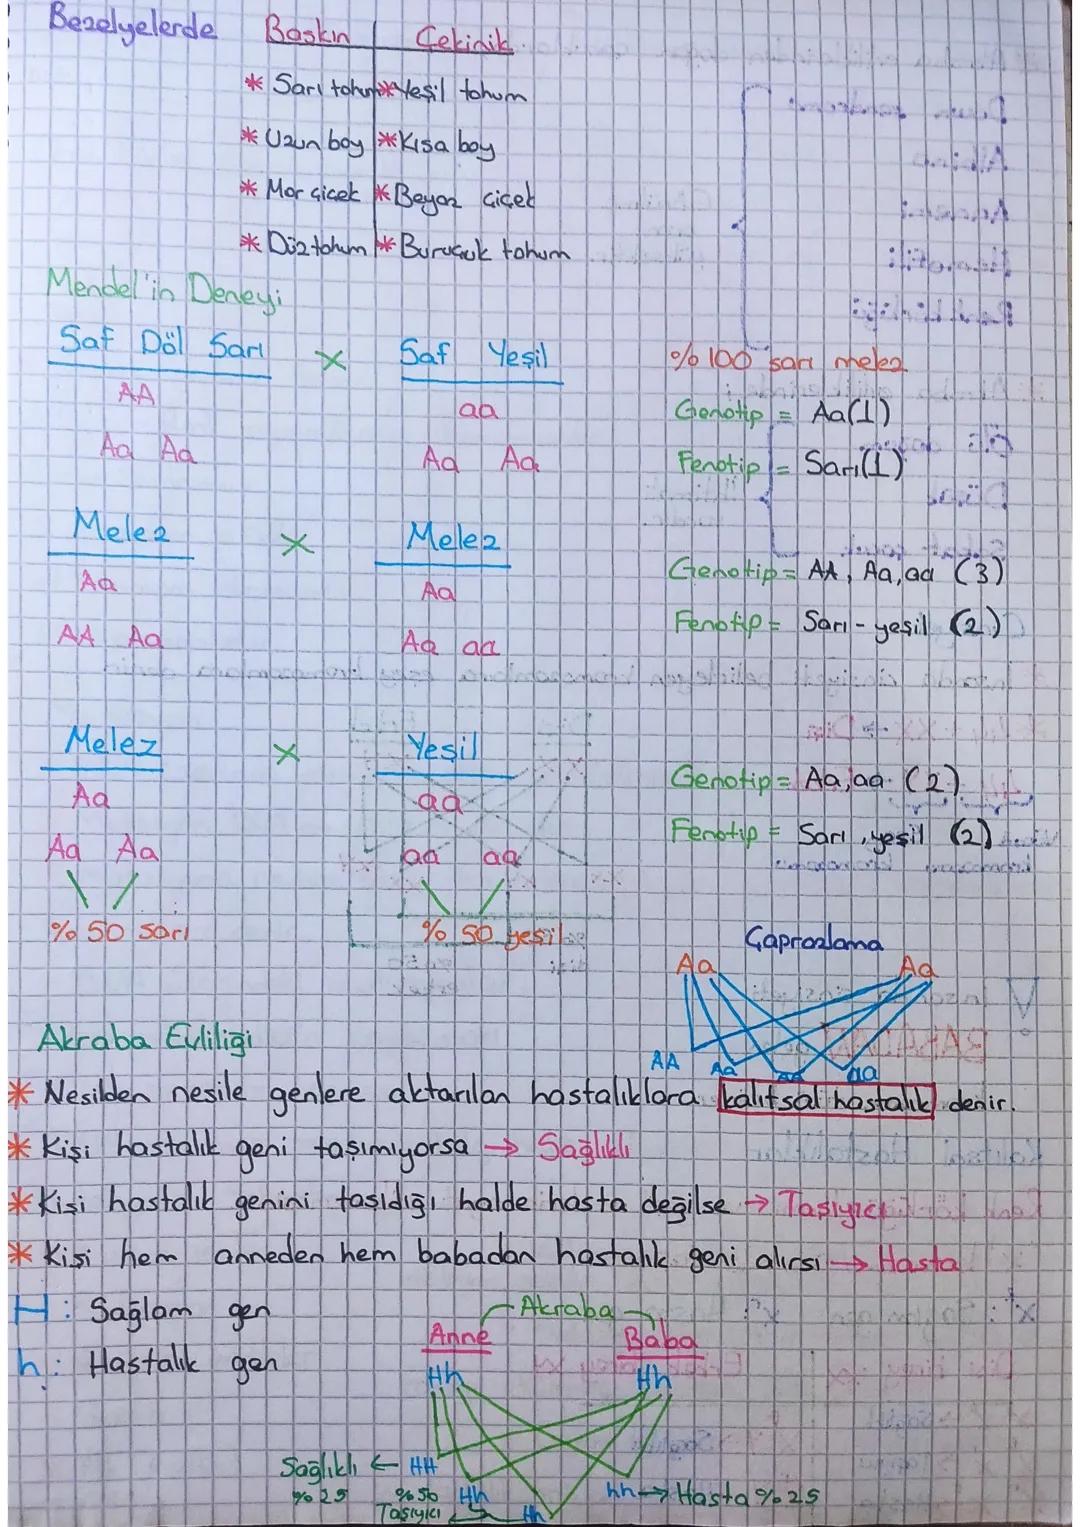 Bezelyelerde Baskın Çekinik
* Sarı tohum * Yeşil tohum
* Uzun boy * Kısa boy
* Mor çiçek * Beyaz çiçek
* Düz tohum * Buruşuk tohum
Mendel'in Deneyi
Saf Döl Sarı X Saf Yeşil %100 sarı melez
AA aa Genotip = Aa(1)
Aa Aa Aa Aa Fenotip = Sarı(1)
Melez X Melez
Aa Aa Genotip = AA, Aa, aa (3)
AA Aa Aa aa Fenotip = Sarı - yeşil (2)
Melez X Yeşil
Aa aa Genotip = Aa, aa (2)
Aa Aa aa aa Fenotip = Sarı, yeşil (2)
% 50 sarı % 50 yeşil
Çaprazlama
Aa Aa
AA Aa Aa aa
Akraba Evliliği
* Nesilden nesile genlere aktarılan hastalıklara kalıtsal hastalık denir.
* Kişi hastalık geni taşımıyorsa → Sağlıklı
* Kişi hastalık genini taşıdığı halde hasta değilse → Taşıyıcı
* Kişi hem anneden hem babadan hastalık geni alırsı → Hasta
H : Sağlam gen
h : Hastalık gen
Akraba
Anne Baba
Hh Hh
Sağlıklı ← HH
%25
%50 Hh
Taşıyıcı Hh
hh → Hasta %25